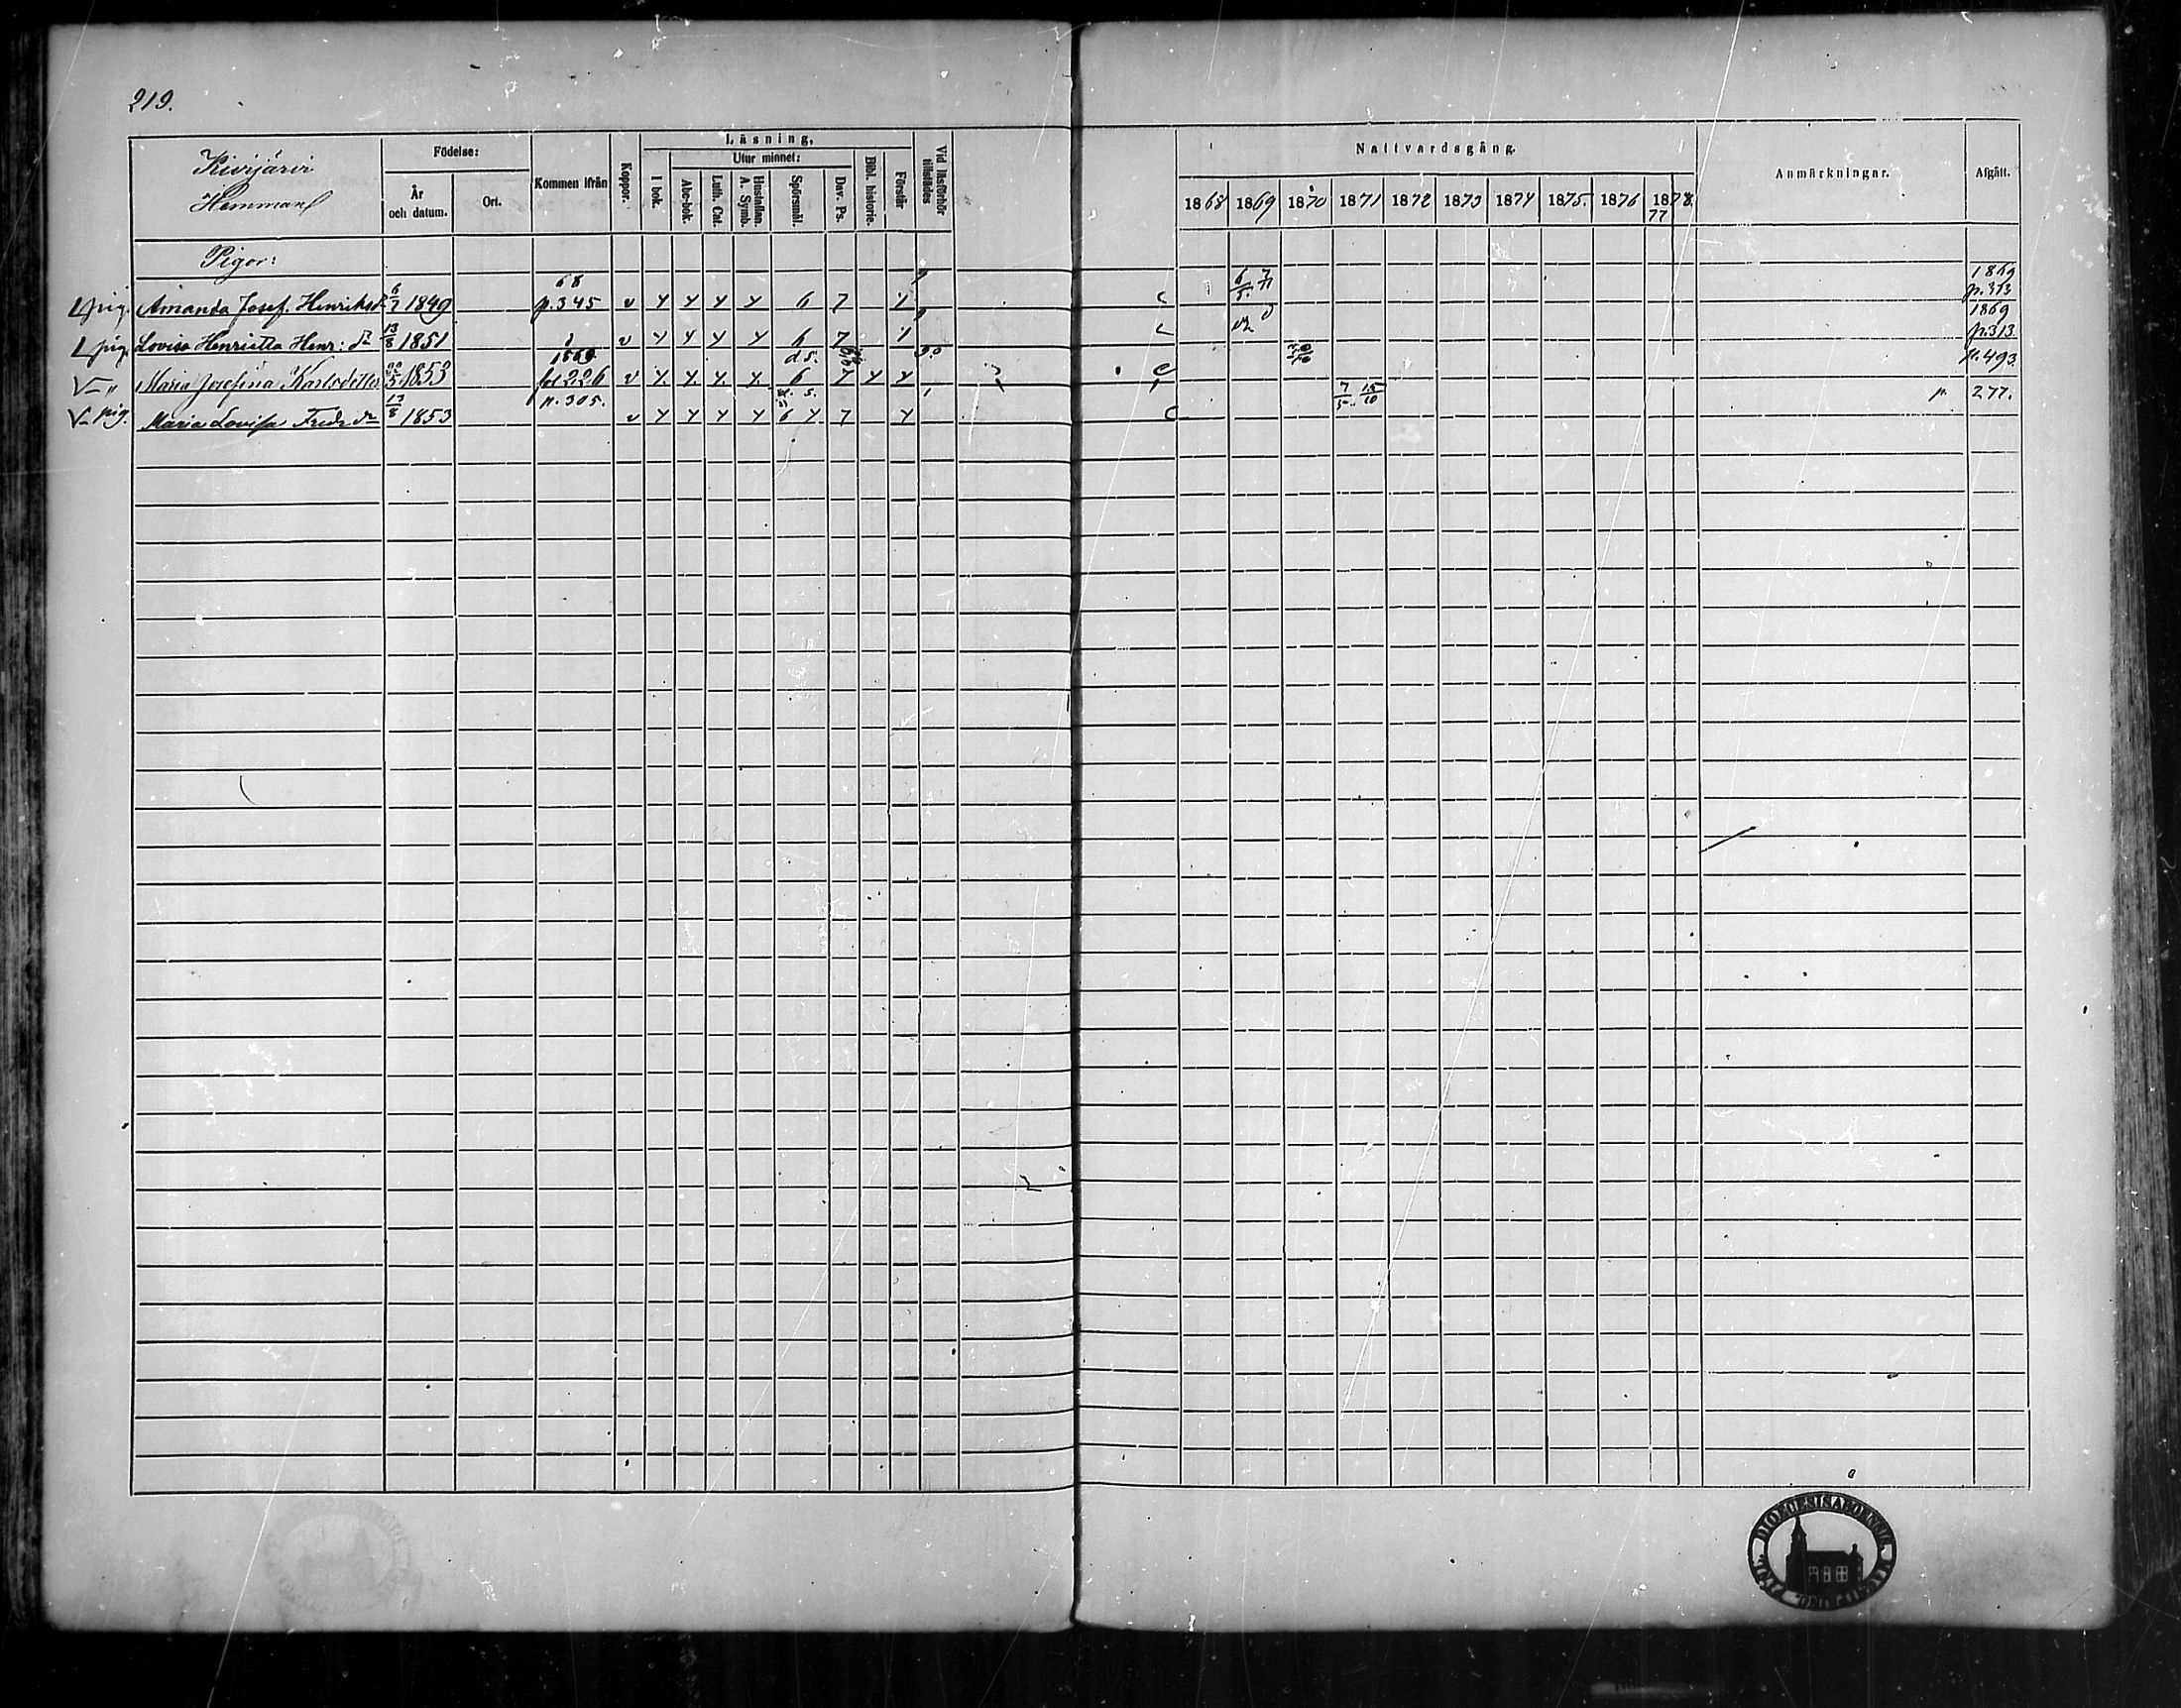 219.
Kivijärvi
Hemman
Födelse:
År och datum.
Ort.
Kommen ifrån
Koppor.
Läsning,
I bok.
Utur minnet:
Abc-bok.
Luth. Cat.
Hustaflan. A. Symb.
Spörsmål.
Dav. Ps.
Bibl. historie.
Förstår
Vid läsförhör tillstädes
Nattvardsgång.
1868 1869 1870 1871 1872 1873 1874 1875. 1876 1878
77
Anmärkningar.
Afgått.
Pigor:
pig. Amanda Josef. Henriksd. 6/7 1849 68 p. 345 v 6 7 c 6/5. 7/11 1869 p. 313
pig. Lovisa Henrietta Henr: dr 13/8 1851 v 6 7 c 1869 p. 313
Maria Josefina Karlsdotter 1853 1869 fol 226 v 6 C p. 493
pig. Maria Lovisa Fredr. dr 13/8 1853 p. 305. v 6 7 C 7/5. 15/10 p. 277.
DIOECESIS ABOENSIS